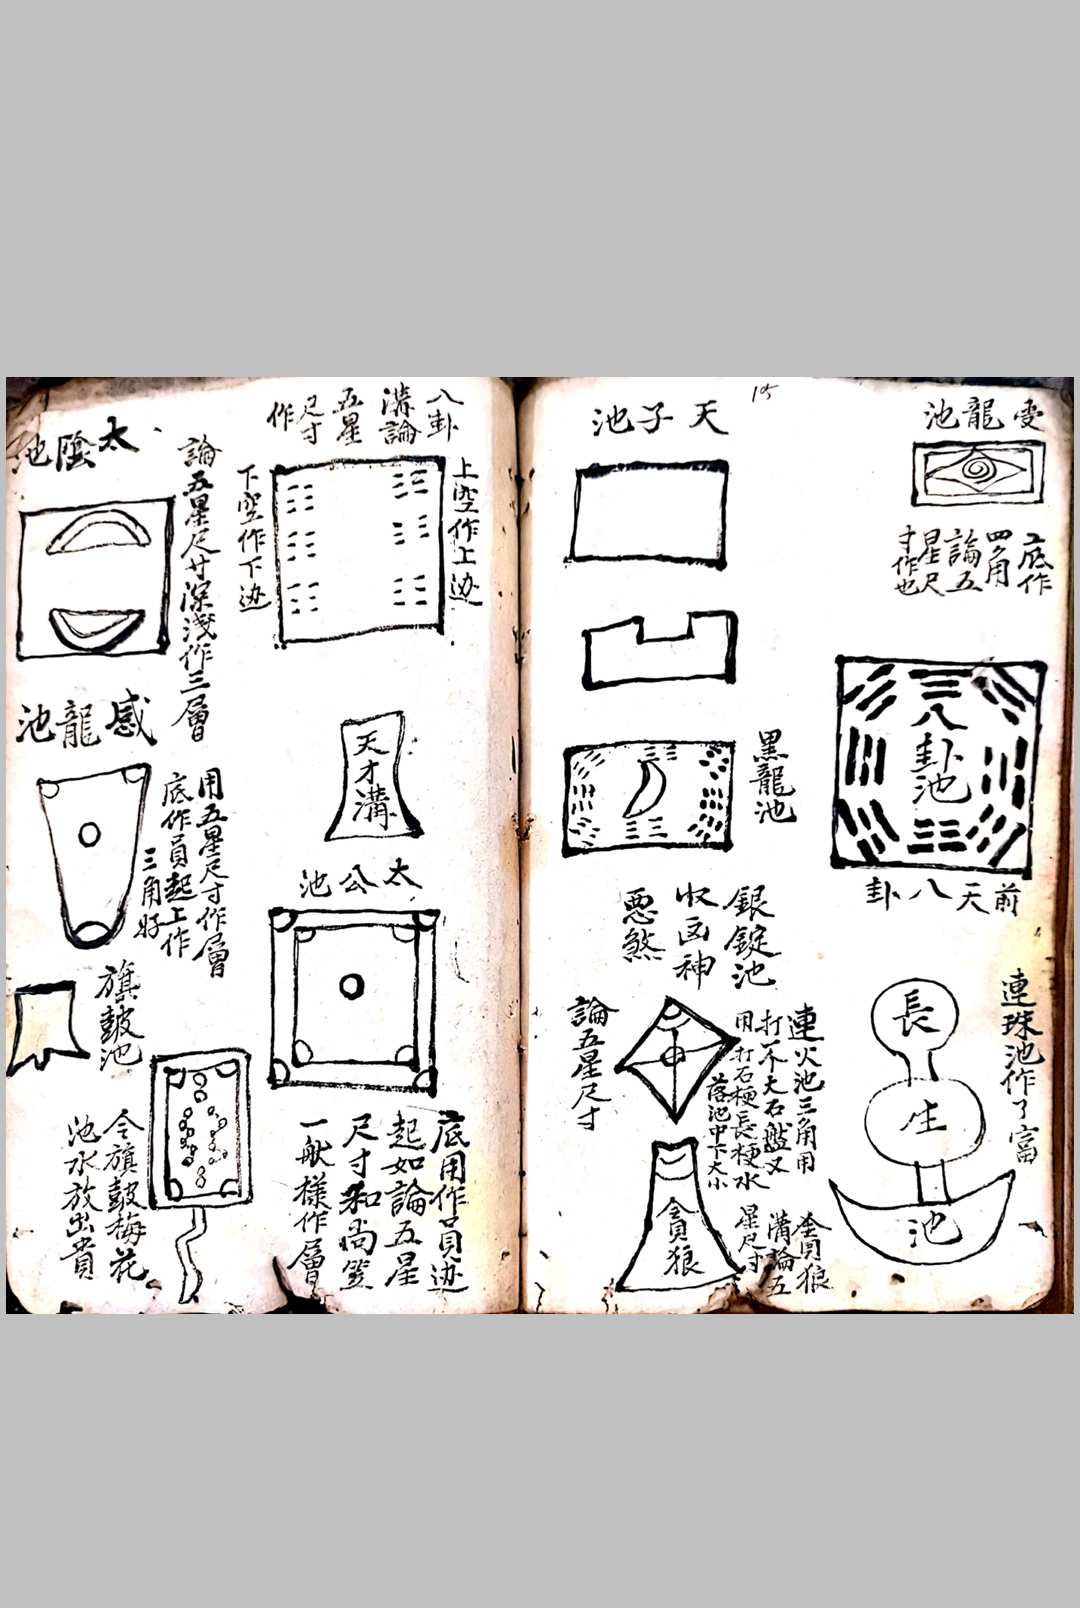 15
雯龍池
底作
四角
論五
星尺
寸作也
八卦池
前天八卦
連珠池作了富
長
生
池
天子池
黑龍池
銀錠池
收凶神
惡煞
論五星尺寸
連火池三角用
打不大石盤又
用打石梗長梗水
落池中下大小
貪狼
溝論五
星尺寸
貪狼
八卦
溝論
五星
尺寸
作
上空作上迹
下空作下迹
天才溝
太公池
底用作員迹
起如論五星
尺寸和尚笠
一般樣作層
太陰池
論五星尺寸深淺作三層
感龍池
用五星尺寸作層
底作員起上作
三角好
旗鼓池
令旗鼓梅花
池水放出貴